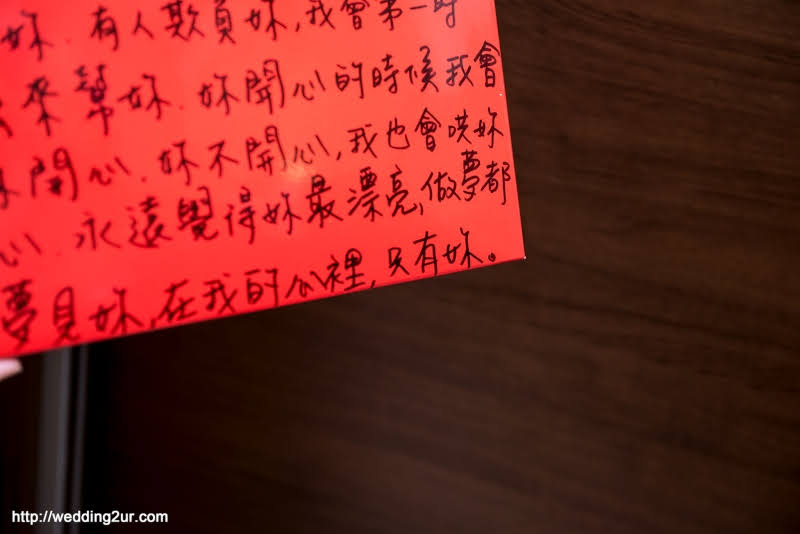 妳.有人欺負妳,我會第一時
來幫妳.妳開心的時候我會
開心.妳不開心,我也會哄妳
心.永遠覺得妳最漂亮,做夢都
夢見妳,在我的心裡,只有妳。
http://wedding2ur.com